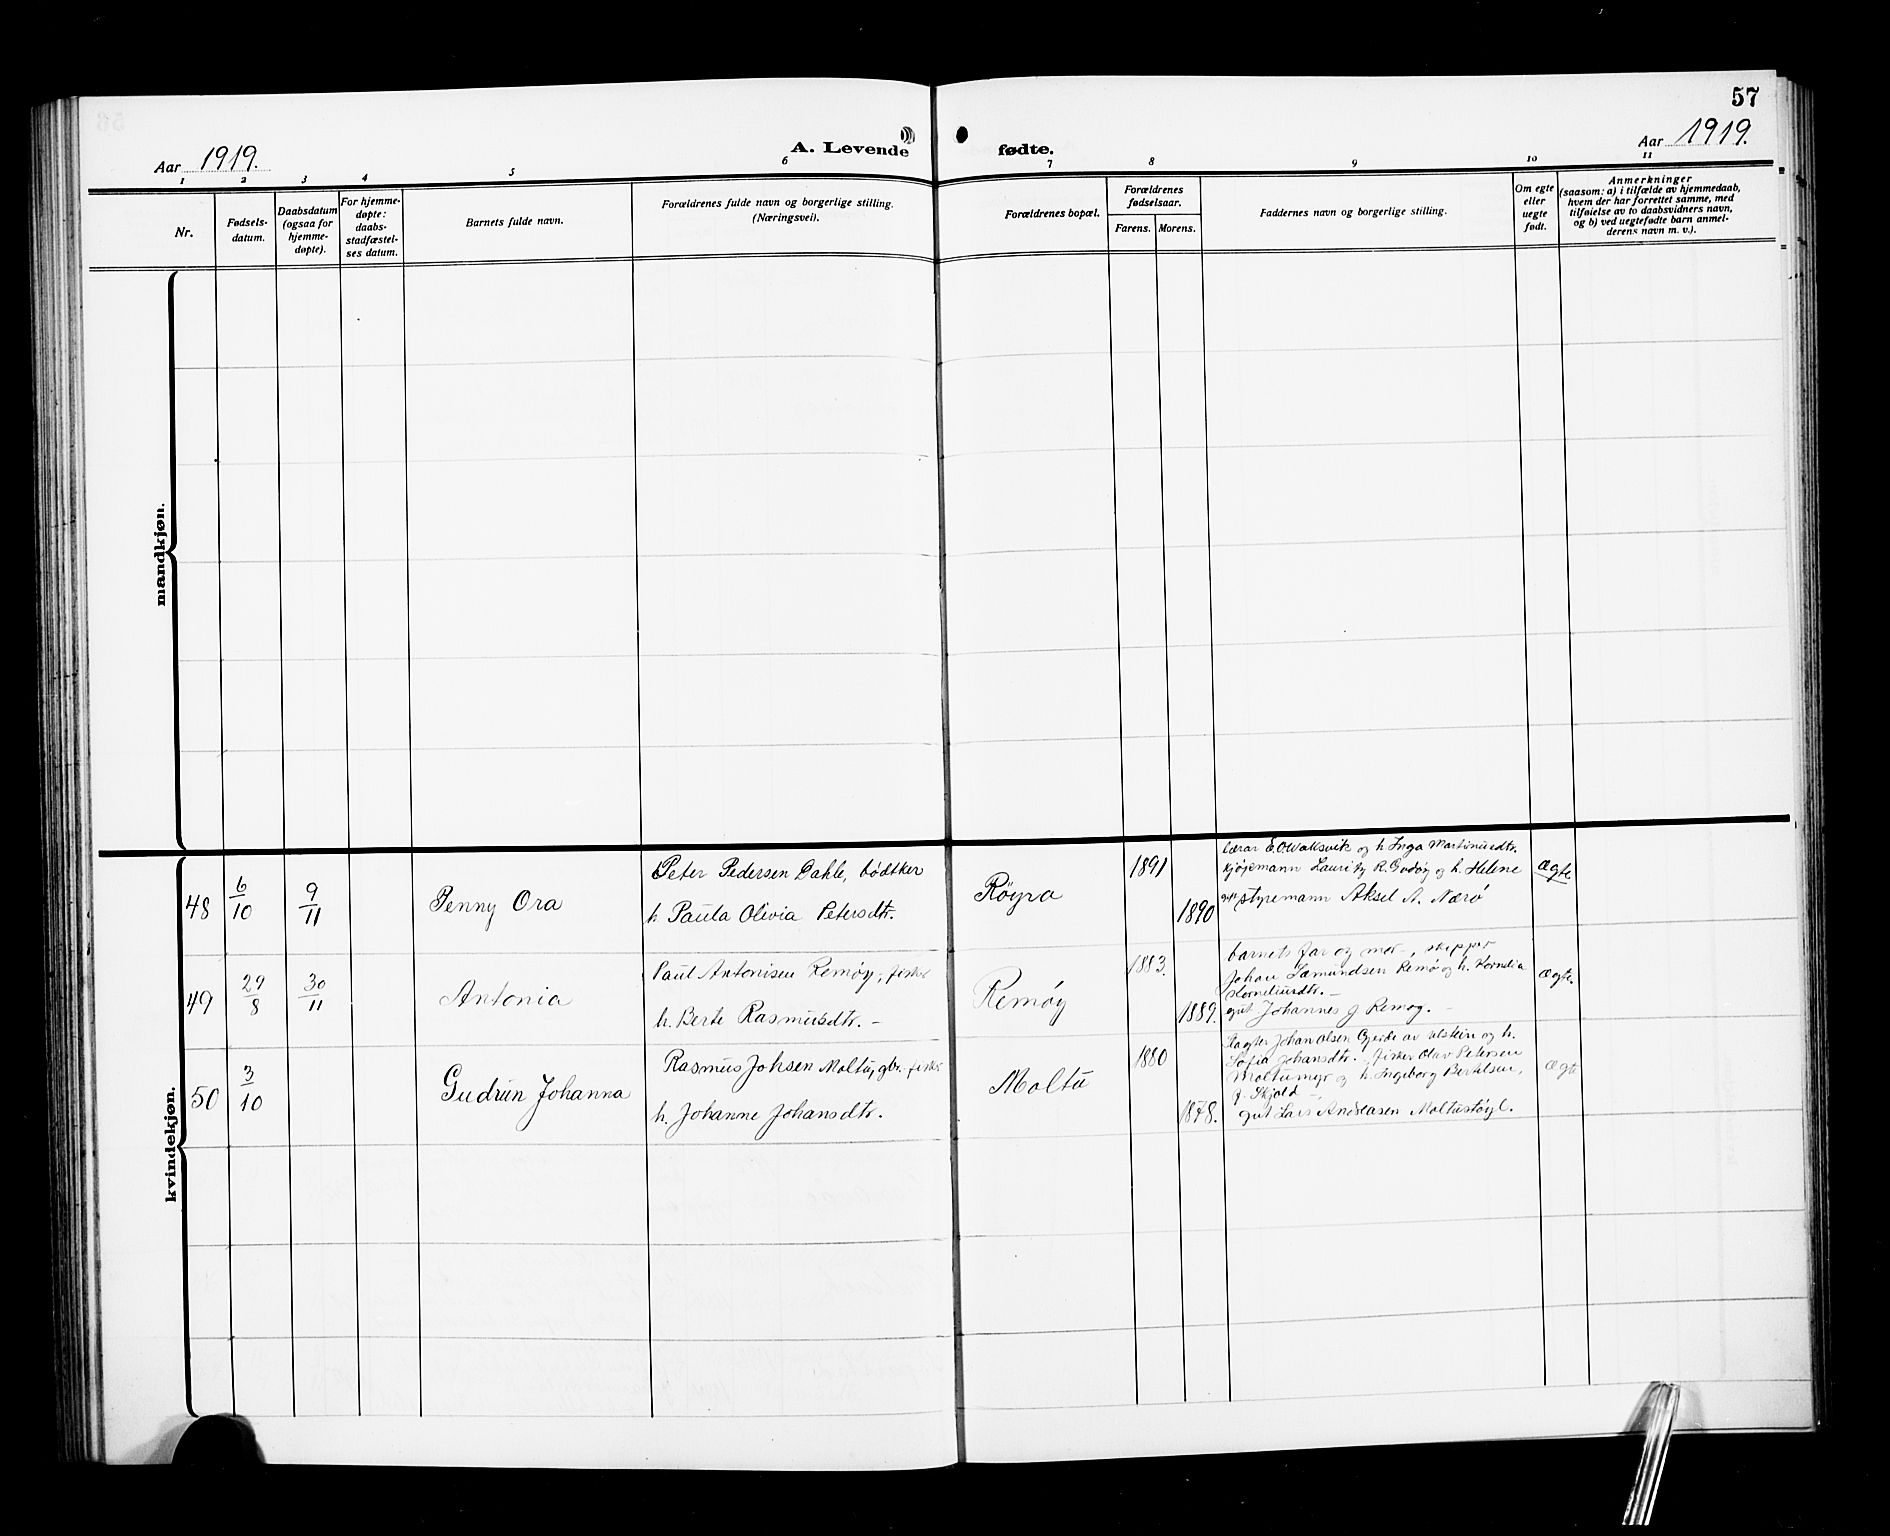 57
Aar 1919.
A. Levende fødte.
Aar 1919.
1 2 3 4 5 6 7 8 9 10 11
Nr.
Fødsels-
datum.
Daabsdatum
(ogsaa for
hjemme-
døpte).
For hjemme-
døpte:
daabs-
stadfæstel-
ses datum.
Barnets fulde navn.
Forældrenes fulde navn og borgerlige stilling.
(Næringsvei).
Forældrenes bopæl.
Forældrenes
fødselsaar.
Farens. Morens.
Faddernes navn og borgerlige stilling.
Om egte
eller
uegte
født.
Anmerkninger
(saasom: a) i tilfælde av hjemmedaab,
hvem der har forrettet samme, med
tilføielse av to daabsvidners navn,
og b) ved uegtefødte barn anmel-
derens navn m. v.).
mandkjøn.
kvindekjøn.
48
6/10
9/11
Penny Ora
Peter Pedersen Dahle, bødtker
h. Paula Olivia Petersdtr.
Røyra
1891
1890
lærar E. O. Walksvik og h. Inga Martinusdtr.
R. Gudøy og h. Helene
styremann Aksel A. Nærø
ægte
49
29/8
30/11
Antonia
Paul Antonisen Remøy, fisker
h. Berte Rasmusdtr. –
Remøy
1883.
1889.
barnets far og mor –, skipper
Johan Samundsen Remøy og h. Kornelia
Korneliusdtr. –
gut Johannes J Remøy. –
ægte.
50
3/10
Gudrun Johanna
Rasmus Johsen Moltu, gbr.-fisker
h. Johanne Johansdtr.
Moltu
1880
1878.
Slagter Johan Olsen Gjerde av Ulstein og h.
Sofia Johansdtr. –, fisker Olav Petersen
Moltumyr og h. Ingeborg Bertelsen,
J. Skjold –,
gut Lars Andreasen Moltustøyl.
ægte